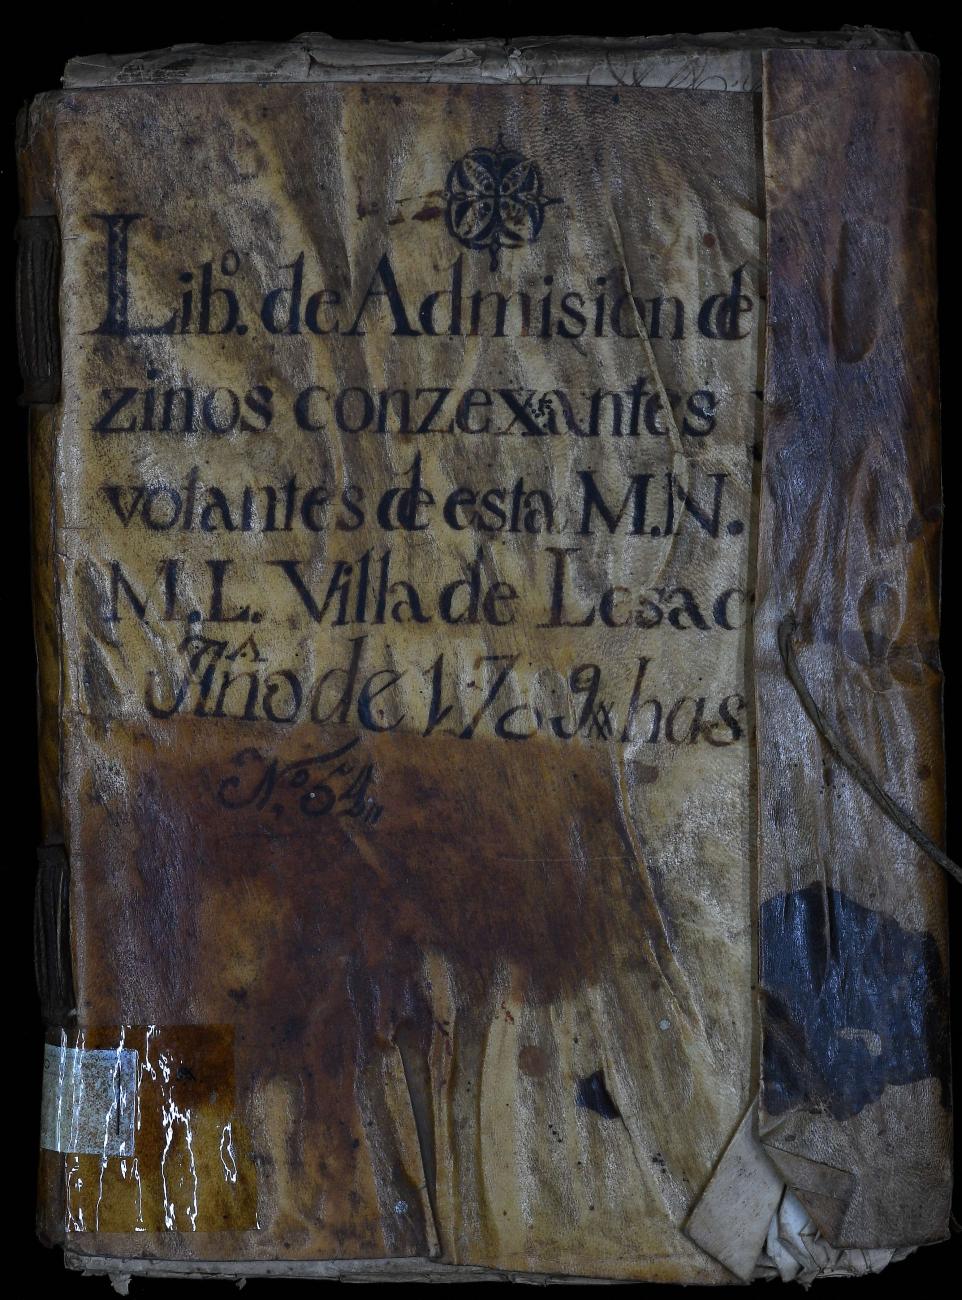 Lib.º de Admision de
zinos conzexantes
votantes de esta M.N.
M.L. Villa de Lesac
Año de 1709 has
N.º 54